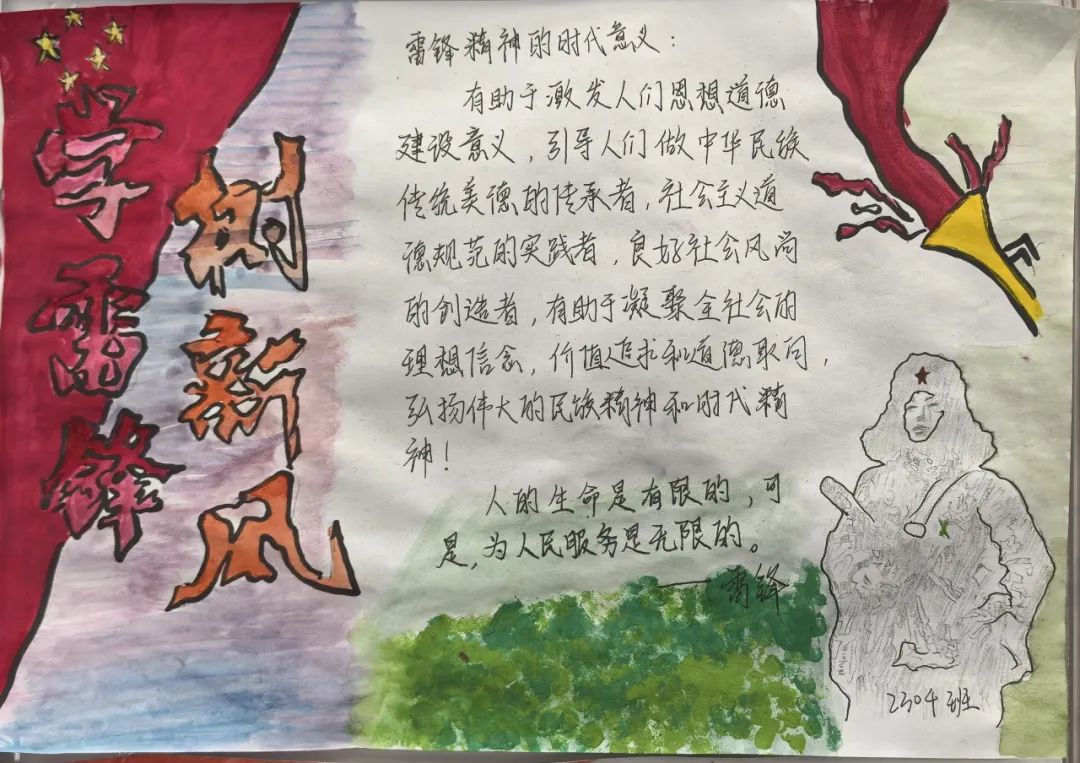 学雷锋
树新风
雷锋精神的时代意义：
有助于激发人们思想道德
建设意义，引导人们做中华民族
传统美德的传承者，社会主义道
德规范的实践者，良好社会风尚
的创造者，有助于凝聚全社会的
理想信念，价值追求和道德取向，
弘扬伟大的民族精神和时代精
神！
人的生命是有限的，可
是，为人民服务是无限的。
——雷锋
2304班